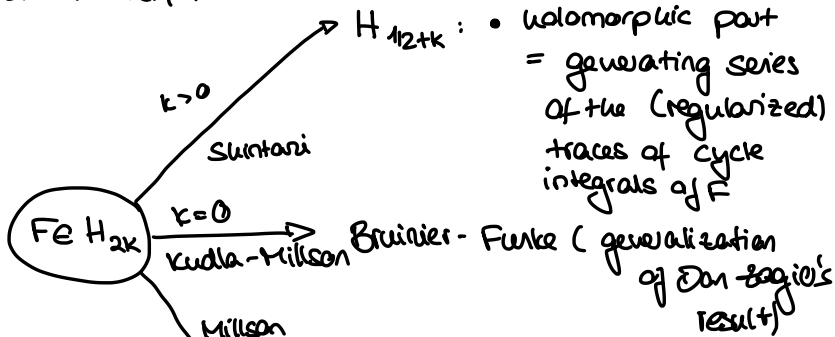 H 1/2+k : • holomorphic part
= generating series
of the (regularized)
traces of cycle
integrals of F
k>0
Shintani
F∈ H2k
k=0
Kudla-Millson
Bruinier - Funke ( generalization
of Don Zagier's
result)
Millson